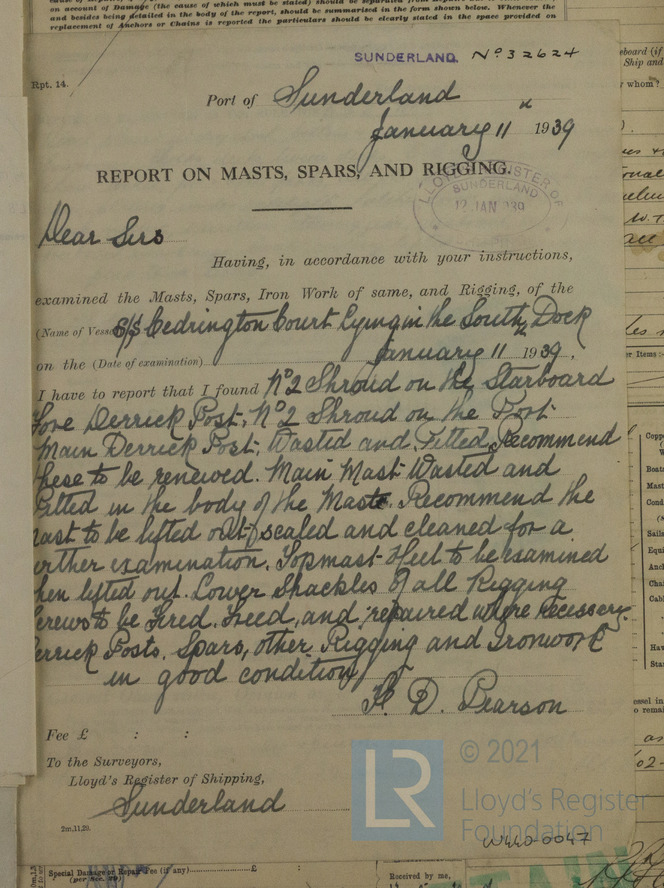 on account of Damage (the cause of which must be stated) should be separated from Repairs due to
and besides being detailed in the body of the report, should be summarized in the form shown below. Whenever the
replacement of Anchors or Chains is reported the particulars should be clearly stated in the space provided on
SUNDERLAND. No 32624
Rpt. 14.
Port of Sunderland
January 11th 1939
REPORT ON MASTS, SPARS, AND RIGGING.
LLOYD'S REGISTER OF
SUNDERLAND
12 JAN 939
Dear Sirs
Having, in accordance with your instructions,
examined the Masts, Spars, Iron Work of same, and Rigging, of the
(Name of Vesse S/S Cedrington Court Lying in the South Dock
on the (Date of examination) January 11th 1939,
I have to report that I found No 2 Shroud on the Starboard
Fore Derrick Post, No 2 Shroud on the Port
Main Derrick Post, Wasted and Pitted, Recommend
these to be renewed. Main Mast Wasted and
Pitted in the body of the Mast. Recommend the
mast to be lifted out, scaled and cleaned for a
urther examination. Topmast Heel to be examined
hen lifted out. Lower Shackles of all Rigging
crews to be Fired. Freed, and, repaired where necessary.
errick Posts. Spars, other Rigging and Ironwork
in good condition
H. D. Pearson
Fee £ : :
To the Surveyors,
Lloyd's Register of Shipping,
Sunderland
2m,11,29.
© 2021
Lloyd's Register
Foundation
W440-0047
Special Damage or Repair Fee (if any) £
(per Sec. 29)
Received by me,